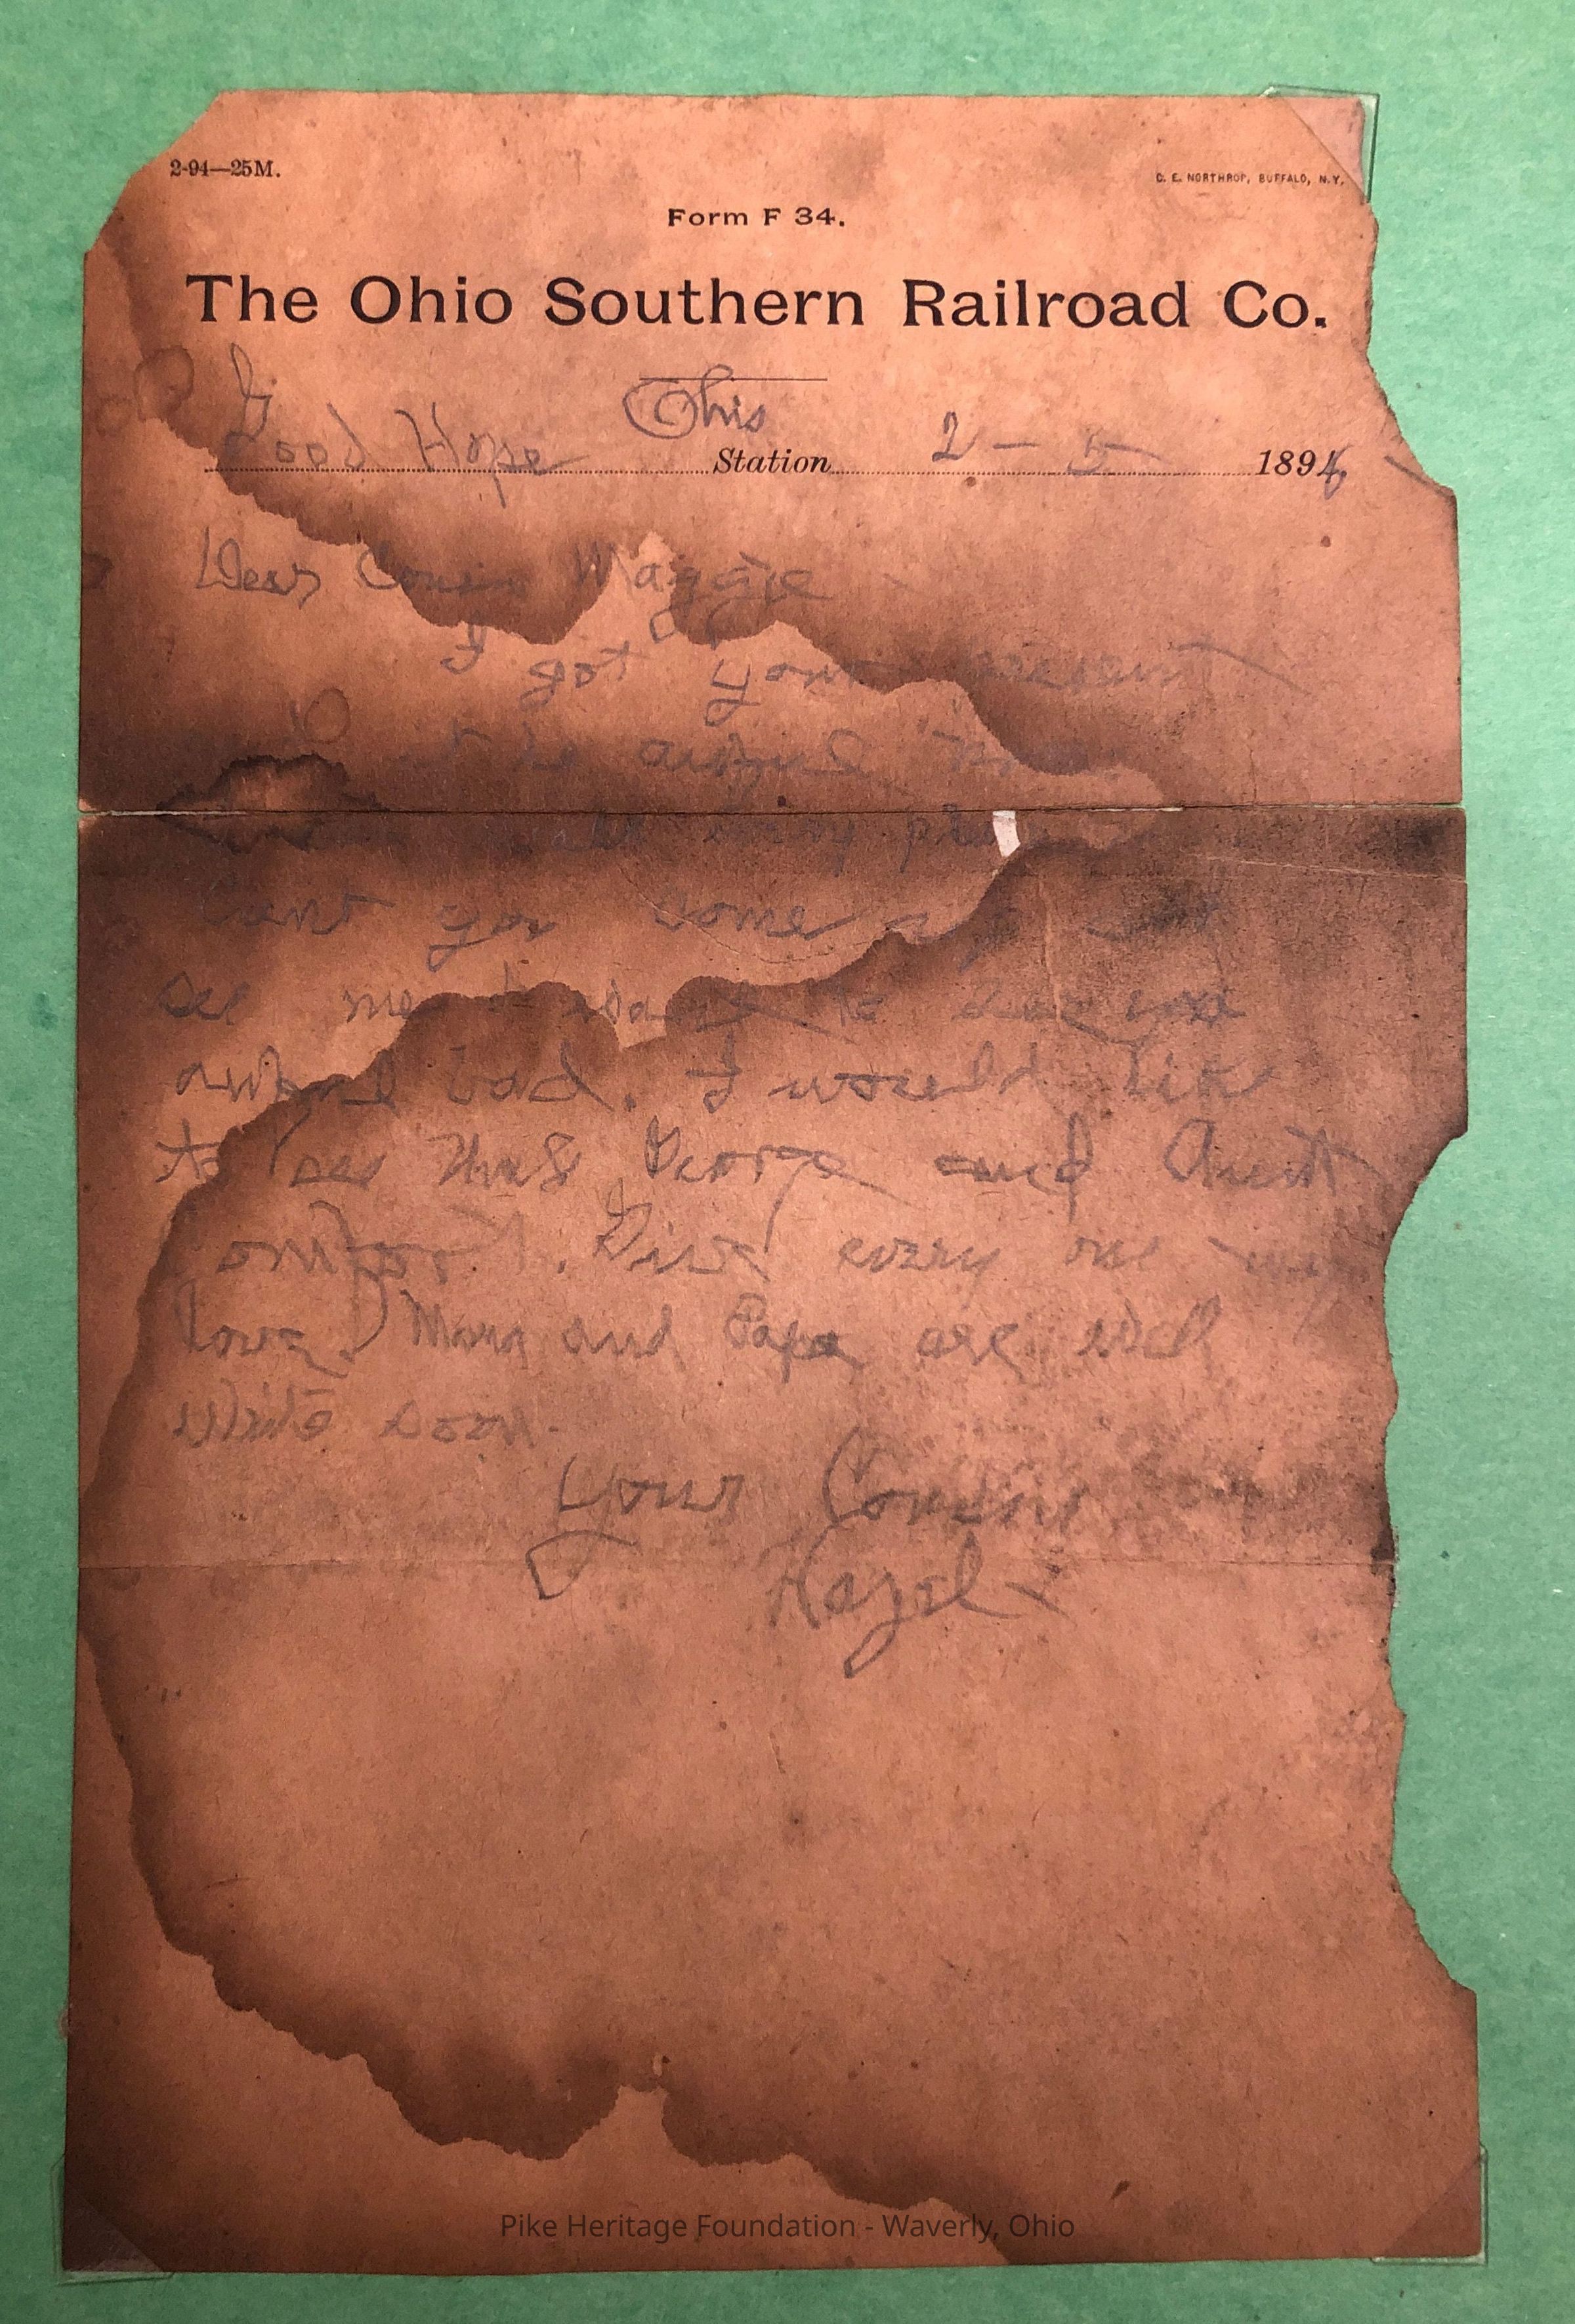 2-94—25M.
C. E. NORTHROP, BUFFALO, N.Y.
Form F 34.
The Ohio Southern Railroad Co.
Good Hope Ohio Station 2-5 189
Dear Cousin Maggie
I got your present
awful
every
Cant you come and
see me I want to see you
awful bad. I would like
to see Uncle George and Aunt
Comfort. Give every one my
love. Mama and Papa are well
write soon.
Your Cousin
Hazel
Pike Heritage Foundation - Waverly, Ohio